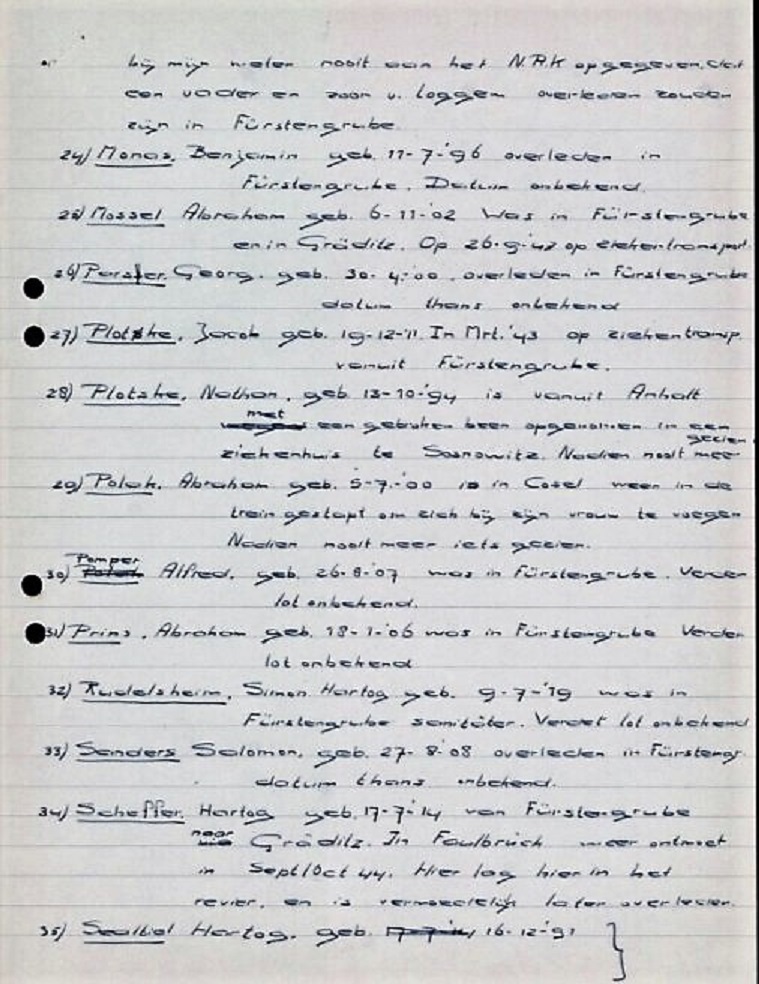 bij mijn weten nooit aan het N.R.K opgegeven, dat
een vader en zoon v. Loggem overleden zouden
zijn in Fürstengrube.
24) Monas, Benjamin geb. 11-7-'96 overleden in
Fürstengrube. Datum onbekend.
25) Mossel Abraham geb. 6-11-'02 Was in Fürstengrube
en in Gräditz. Op 26-9-'43 op ziekentransport.
26) Georg. geb. 30-4-'00, overleden in Fürstengrube
datum thans onbekend
27) Plotske, Jacob geb. 19-12-'11. In Mrt. '43 op ziekentransp.
vanuit Fürstengrube.
28) Plotske, Nathan, geb. 13-10-'94 is vanuit Anhalt
met een gebroken been opgenomen in een
ziekenhuis te Sosnowitz. Nadien nooit meer gezien.
29) Polak, Abraham geb. 5-7-'00 is in Cosel weer in de
trein gestapt om zich bij zijn vrouw te voegen
Nadien nooit meer iets gezien.
30) Pomper Alfred, geb. 26-8-'07 was in Fürstengrube. Verder
lot onbekend.
31) Prins, Abraham geb. 18-1-'06 was in Fürstengrube Verder
lot onbekend
32) Rudelsheim, Simon Hartog geb. 9-7-'19 was in
Fürstengrube sanitäter. Verder lot onbekend
33) Sanders Salomon, geb. 27-8-'08 overleden in Fürstengr.
datum thans onbekend.
34) Scheffer Hartog geb. 17-7-'14 van Fürstengrube
naar Gräditz. In Faulbrück weer ontmoet
in Sept/Oct 44. Hier lag hier in het
revier, en is vermoedelijk later overleden.
35) Sealtiel Hartog. geb. 16-12-'91